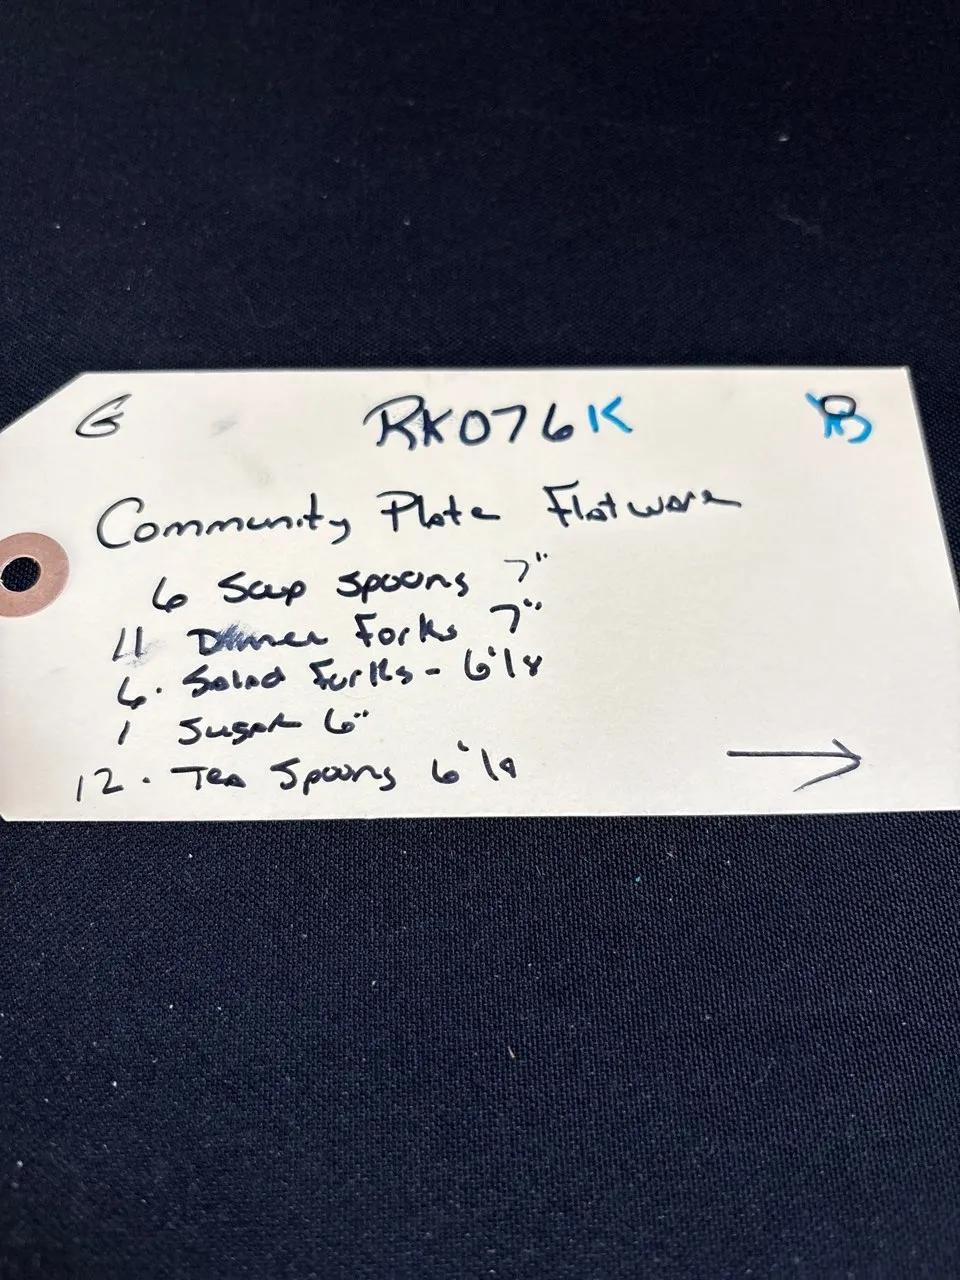 G RK076K
Community Plate Flatware
6 Soup Spoons 7"
11 Dinner Forks 7"
6. Salad Forks - 6" 1/8
1 Sugar 6"
12. Tea Spoons 6" 1/8